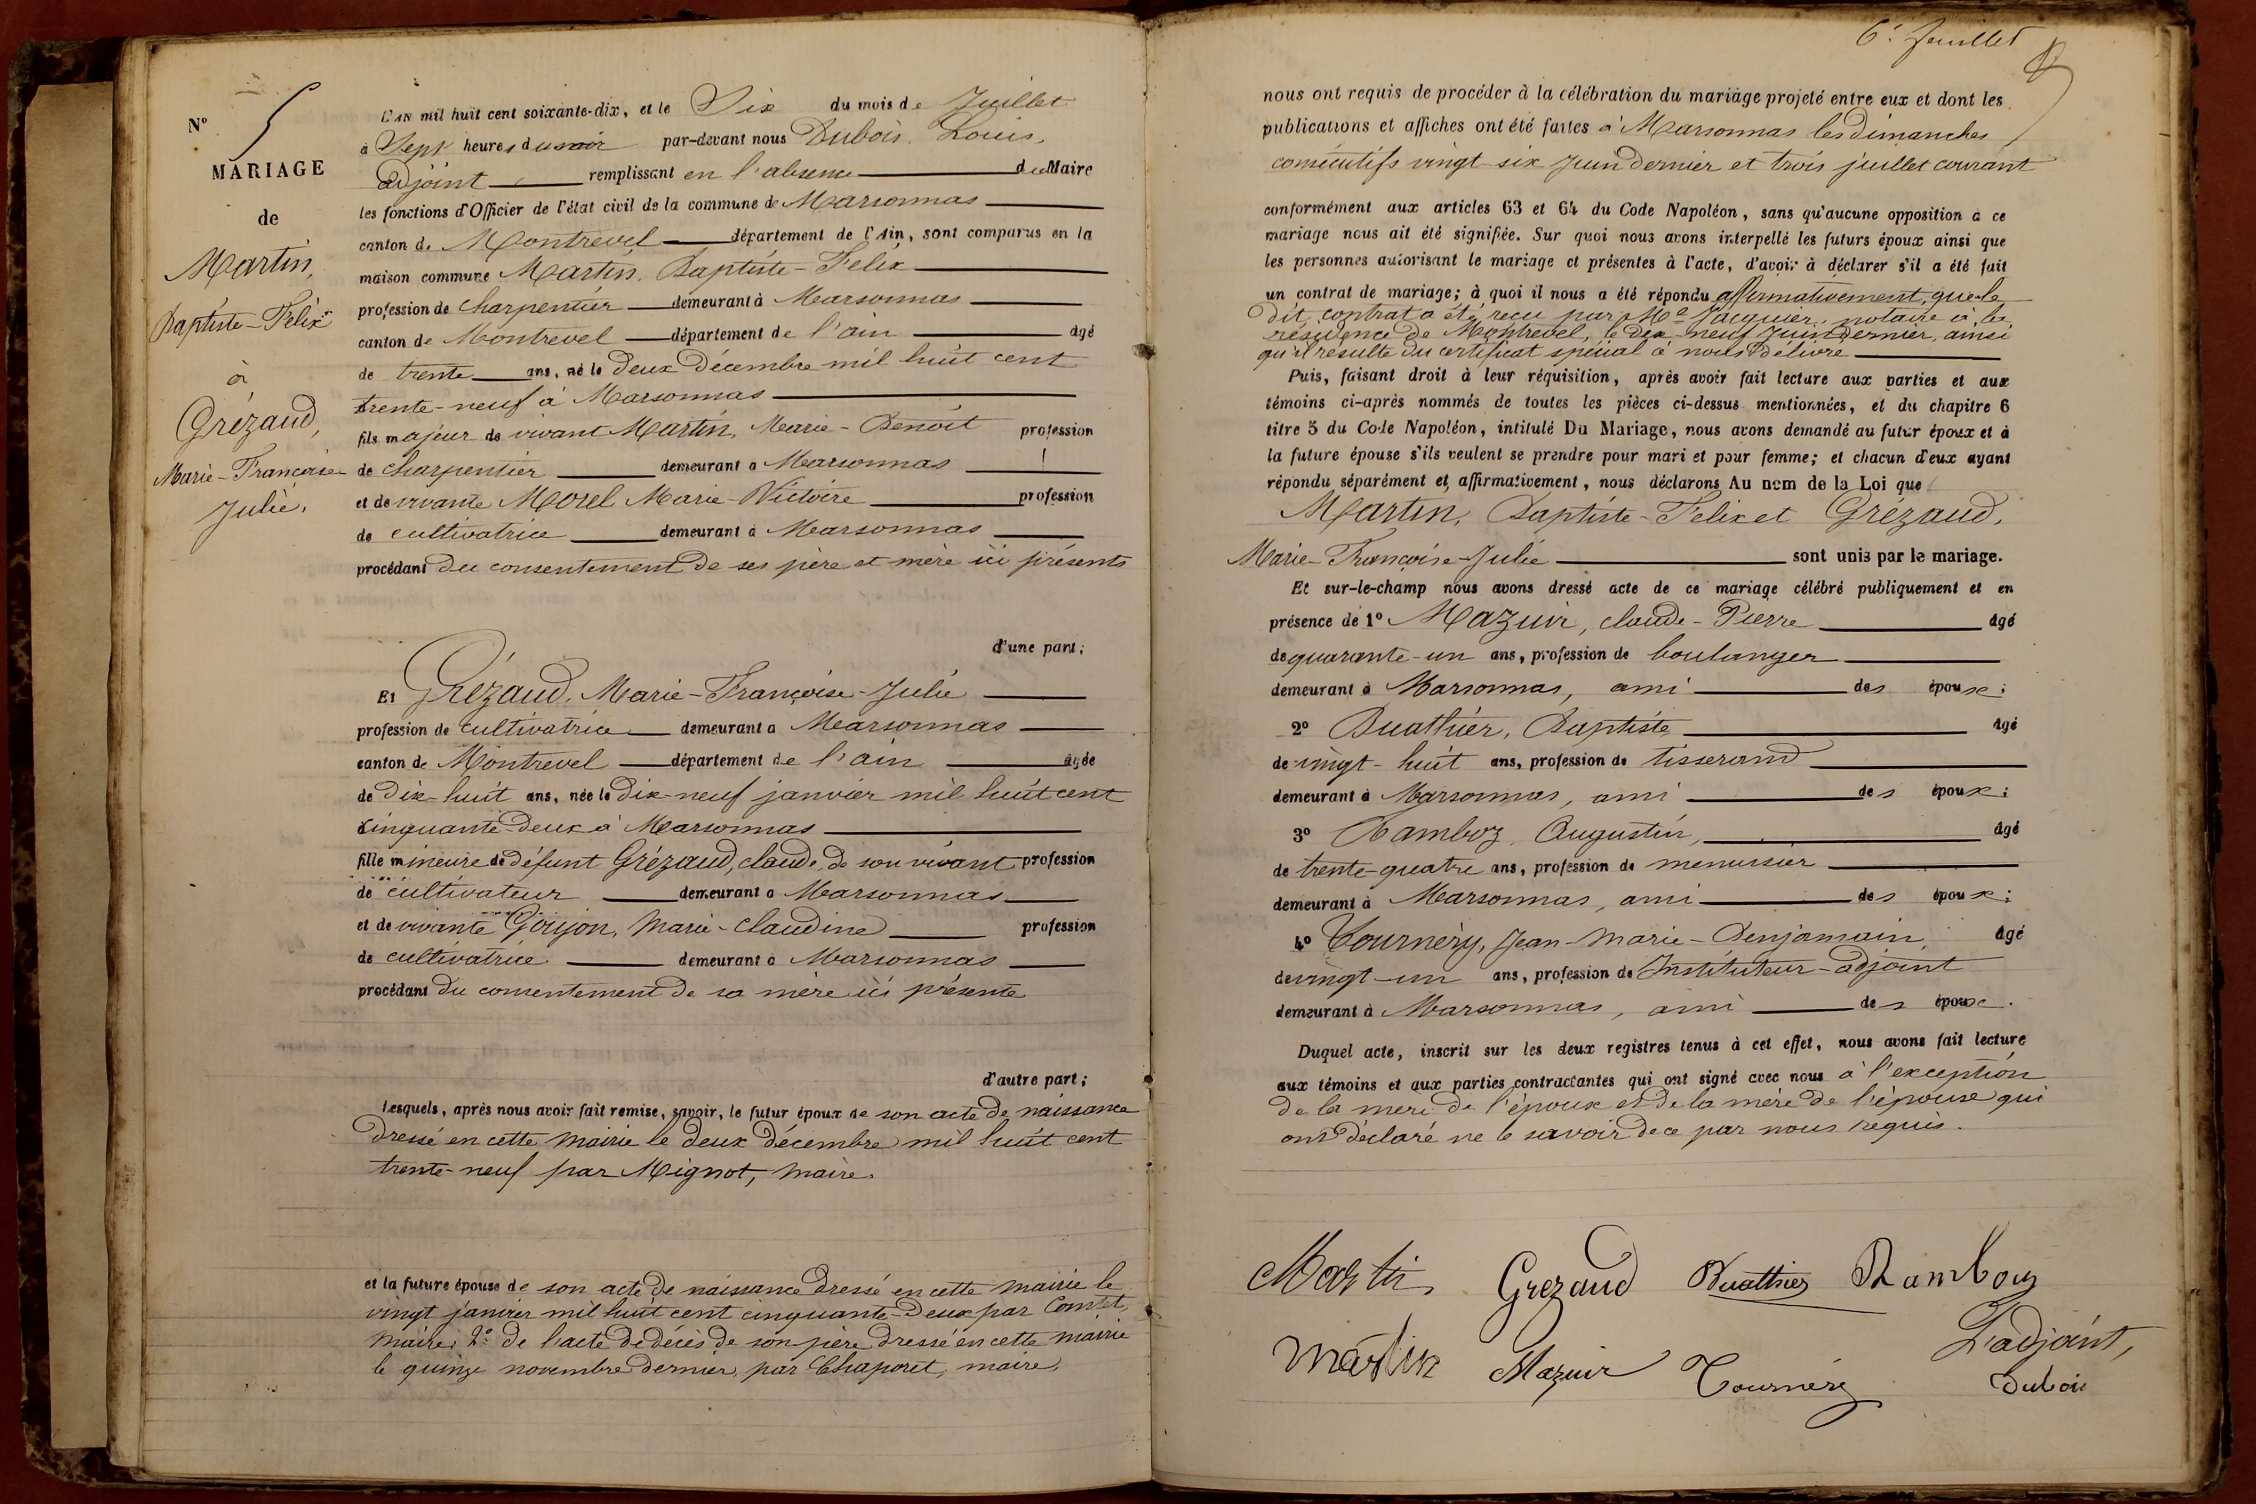 N° 5
MARIAGE
de
Martin,
Baptiste-Félix
à
Grézaud,
Marie-Françoise
Julie.
L'AN mil huit cent soixante-dix, et le Six du mois de Juillet
à Sept heures du soir par-devant nous Dubois Louis,
adjoint remplissant en l'absence du Maire
les fonctions d'Officier de l'état civil de la commune de Marsonnas
canton de Montrevel département de l'Ain, sont comparus en la
maison commune Martin, Baptiste-Félix
profession de charpentier demeurant à Marsonnas
canton de Montrevel département de l'ain âgé
de trente ans, né le deux Décembre mil huit cent
trente-neuf à Marsonnas
fils majeur de vivant Martin, Marie-Benoît profession
de charpentier demeurant à Marsonnas
et de vivante Morel Marie-Victoire profession
de cultivatrice demeurant à Marsonnas
procédant du consentement de ses père et mère ici présents
d'une part;
Et Grézaud, Marie-Françoise-Julie
profession de cultivatrice demeurant à Marsonnas
canton de Montrevel département de l'ain âgée
de dix-huit ans, née le dix-neuf janvier mil huit cent
cinquante-deux à Marsonnas
fille mineure de défunt Grézaud, claude, de son vivant profession
de cultivateur demeurant à Marsonnas
et de vivante Goyon, Marie-claudine profession
de cultivatrice demeurant à Marsonnas
procédant du consentement de sa mère ici présente
d'autre part;
Lesquels, après nous avoir fait remise, savoir, le futur époux de son acte de naissance
dressé en cette mairie le deux décembre mil huit cent
trente-neuf par Mignot, maire.
et la future épouse de son acte de naissance dressé en cette mairie le
vingt janvier mil huit cent cinquante-deux par Comtet,
maire; 2° de l'acte de décès de son père dressé en cette mairie
le quinze novembre dernier, par Chaporet, maire,
6 Juillet
nous ont requis de procéder à la célébration du mariage projeté entre eux et dont les
publications et affiches ont été faites à Marsonnas les dimanches
consécutifs vingt-six juin dernier et trois juillet courant
conformément aux articles 63 et 64 du Code Napoléon, sans qu'aucune opposition à ce
mariage nous ait été signifiée. Sur quoi nous avons interpellé les futurs époux ainsi que
les personnes autorisant le mariage et présentes à l'acte, d'avoir à déclarer s'il a été fait
un contrat de mariage; à quoi il nous a été répondu affirmativement, que le
dit contrat a été reçu par Me Jacquier, notaire à la
résidence de Montrevel, le dix-neuf Juin dernier, ainsi
qu'il résulte du certificat spécial à nous délivré
Puis, faisant droit à leur réquisition, après avoir fait lecture aux parties et aux
témoins ci-après nommés de toutes les pièces ci-dessus mentionnées, et du chapitre 6
titre 5 du Code Napoléon, intitulé Du Mariage, nous avons demandé au futur époux et à
la future épouse s'ils veulent se prendre pour mari et pour femme; et chacun d'eux ayant
répondu séparément et affirmativement, nous déclarons Au nom de la Loi que
Martin, Baptiste-Félix et Grézaud,
Marie-Françoise-Julie sont unis par le mariage.
Et sur-le-champ nous avons dressé acte de ce mariage célébré publiquement et en
présence de 1° Mazuir, claude-Pierre âgé
de quarante-un ans, profession de boulanger
demeurant à Marsonnas, ami des époux;
2° Buathier, Baptiste âgé
de vingt-huit ans, profession de tisserand
demeurant à Marsonnas, ami des époux;
3° Ramboz Augustin, âgé
de trente-quatre ans, profession de menuisier
demeurant à Marsonnas, ami des époux;
4° Tournéry, Jean-Marie-Benjamain, âgé
de vingt-un ans, profession de Instituteur-adjoint
demeurant à Marsonnas, ami des époux.
Duquel acte, inscrit sur les deux registres tenus à cet effet, nous avons fait lecture
aux témoins et aux parties contractantes qui ont signé avec nous à l'exception
de la mère de l'époux et de la mère de l'épouse qui
ont déclaré ne le savoir de ce par nous requis.
Martin Grezaud Buathier Ramboz
Martin Mazuir Tournéry L'adjoint,
Dubois